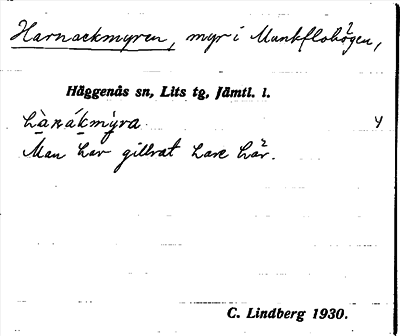 Harnackmyren, myr i Munkflohögen,
Häggenås sn, Lits tg, Jämtl. l.
hànákmỳra 4
Man har gillrat hare här.
C. Lindberg 1930.